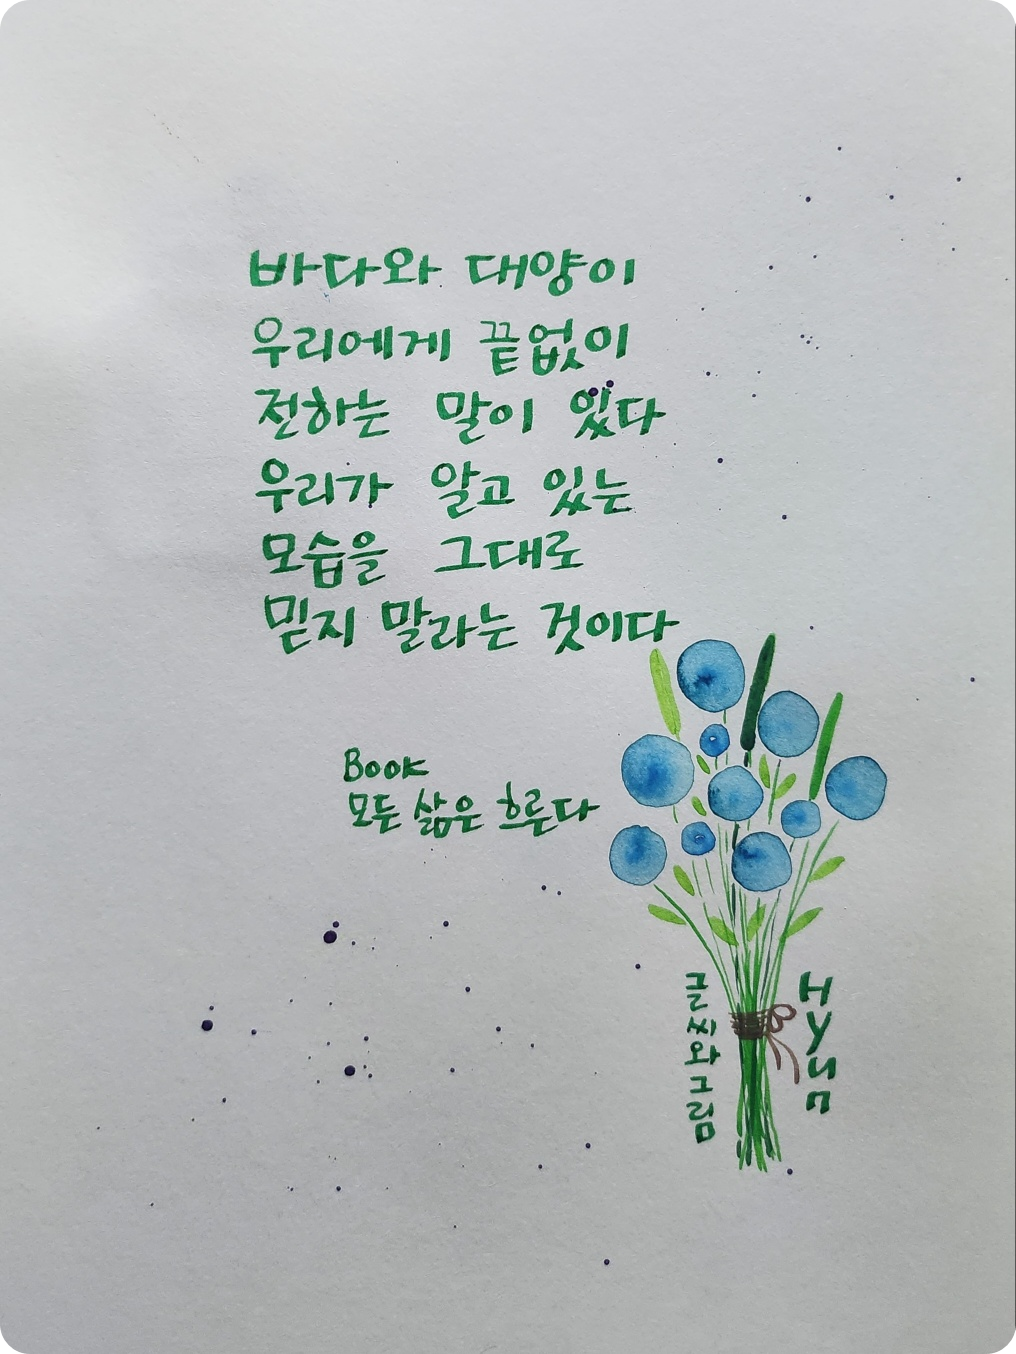 바다와 대양이
우리에게 끝없이
전하는 말이 있다
우리가 알고 있는
모습을 그대로
믿지 말라는 것이다
Book
모든 삶은 흐른다
글씨와그림
Hyun